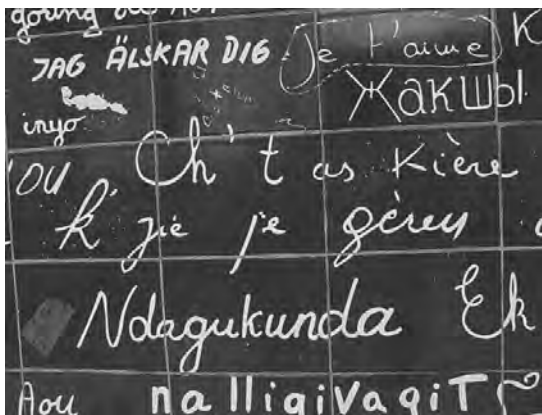 JAG ÄLSKAR DIG
Je t'aime
K
Жакшы
inyo
OU
Ch't as Kière
k' jie je gèreu
Ndagukunda Ek
Aou
nalligivagiT